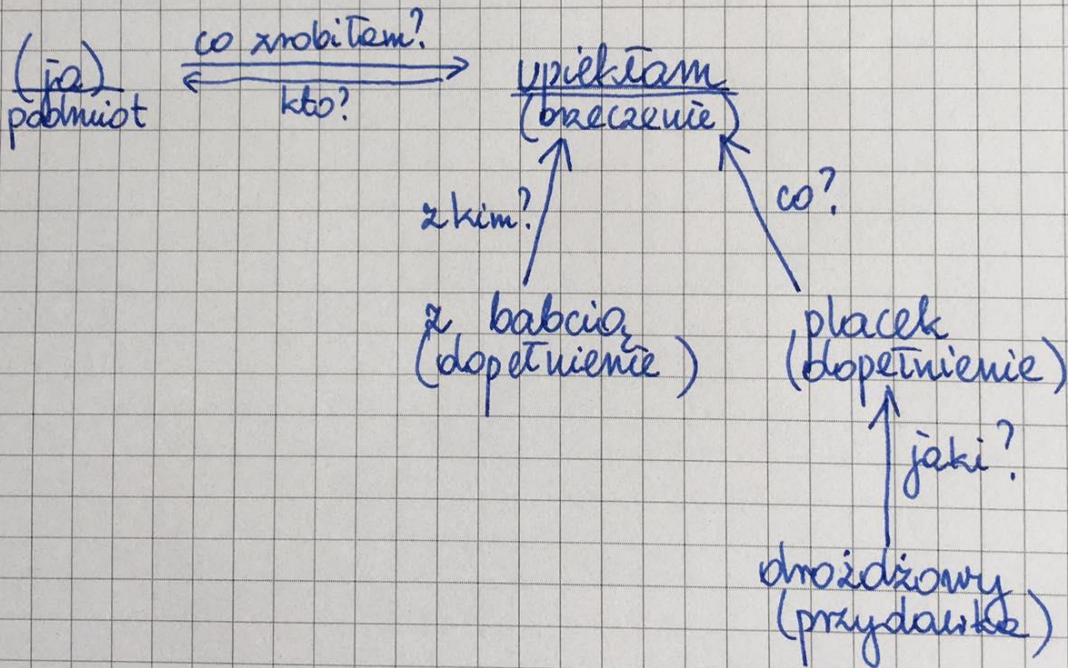 co zrobiłam?
(ja)
podmiot
kto?
upiekłam
(orzeczenie)
z kim?
co?
z babcią
(dopełnienie)
placek
(dopełnienie)
jaki?
drożdżowy
(przydawka)